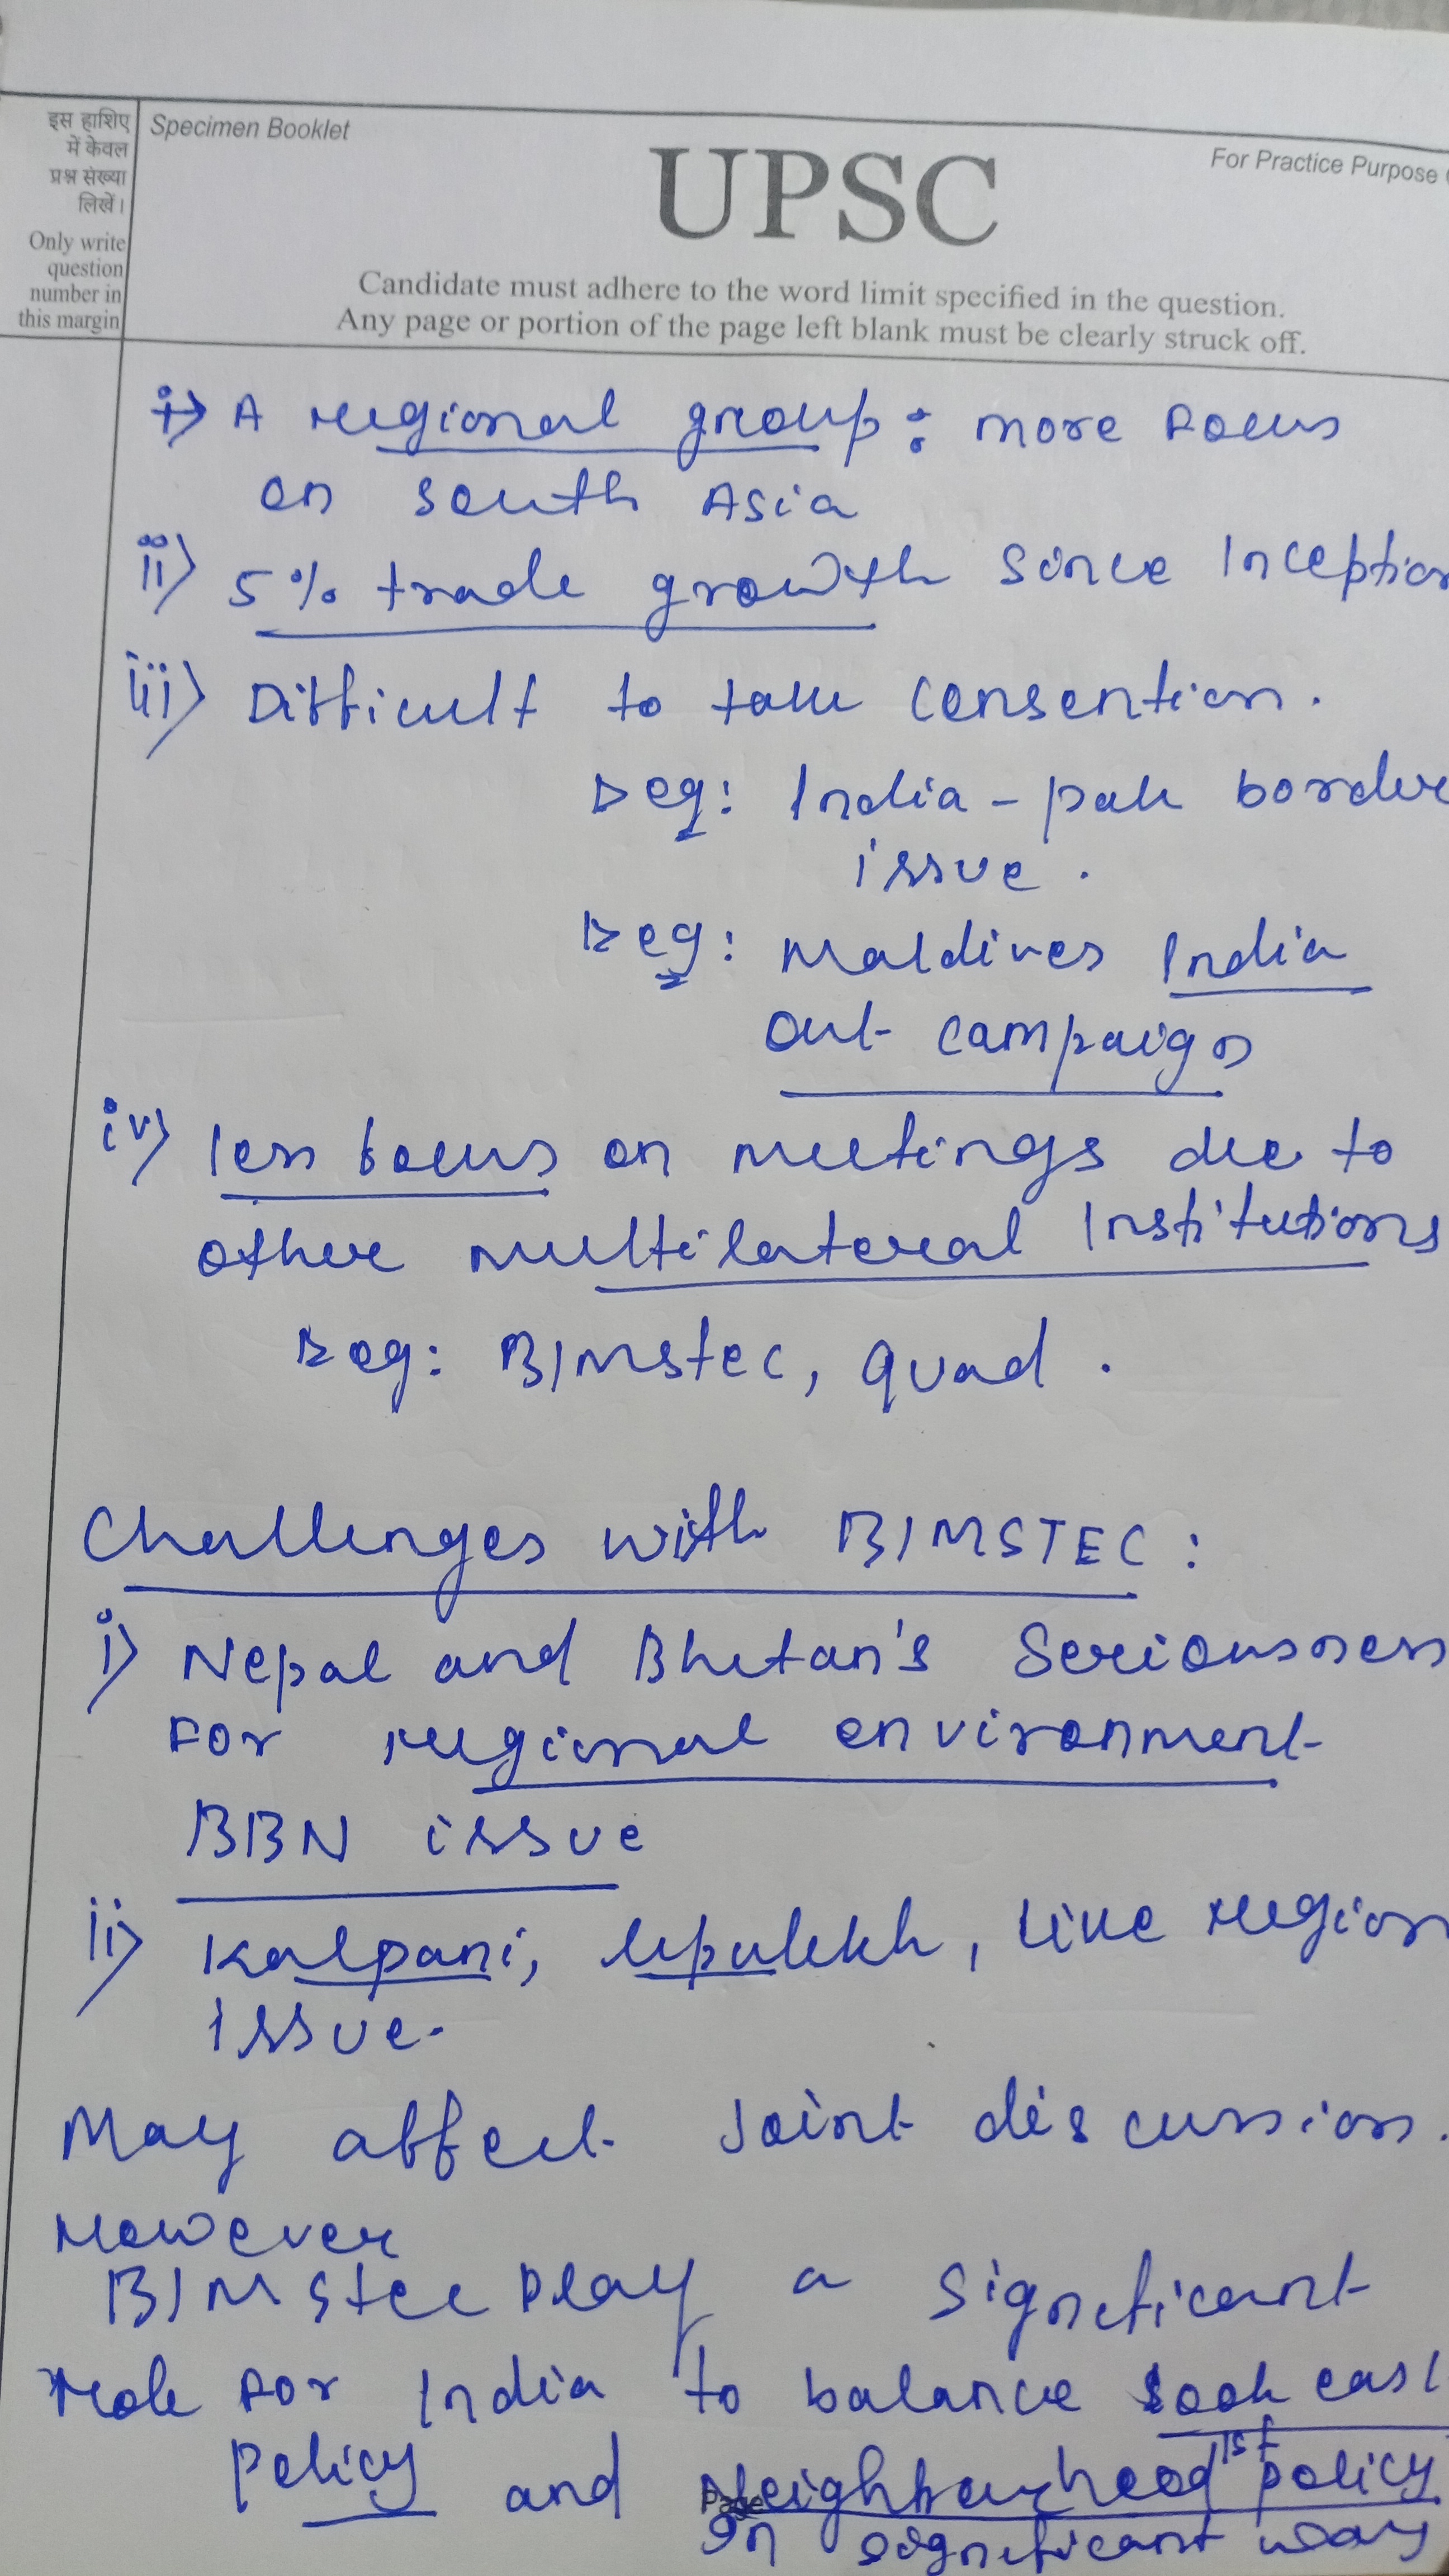 इस हाशिए
में केवल
प्रश्न संख्या
लिखें।
Only write
question
number in
this margin
Specimen Booklet
For Practice Purpose
UPSC
Candidate must adhere to the word limit specified in the question.
Any page or portion of the page left blank must be clearly struck off.
i) A regional group : more focus
on south Asia
ii) 5% trade growth since Inception
iii) Difficult to take consention.
eg: India - pak border
issue.
eg: Maldives India
out campaign
iv) less focus on meetings due to
other multilateral Institutions
eg: BIMstec, quad.
Challenges with BIMSTEC :
i) Nepal and Bhutan's Seriousness
for regional environment
BBN issue
ii) Kalpani, lipulekh, like region
issue.
May affect Joint discussion.
However
BIMstec play a significant
role for India to balance look east
policy and Neighbourhood 1st policy
in significant way
Page